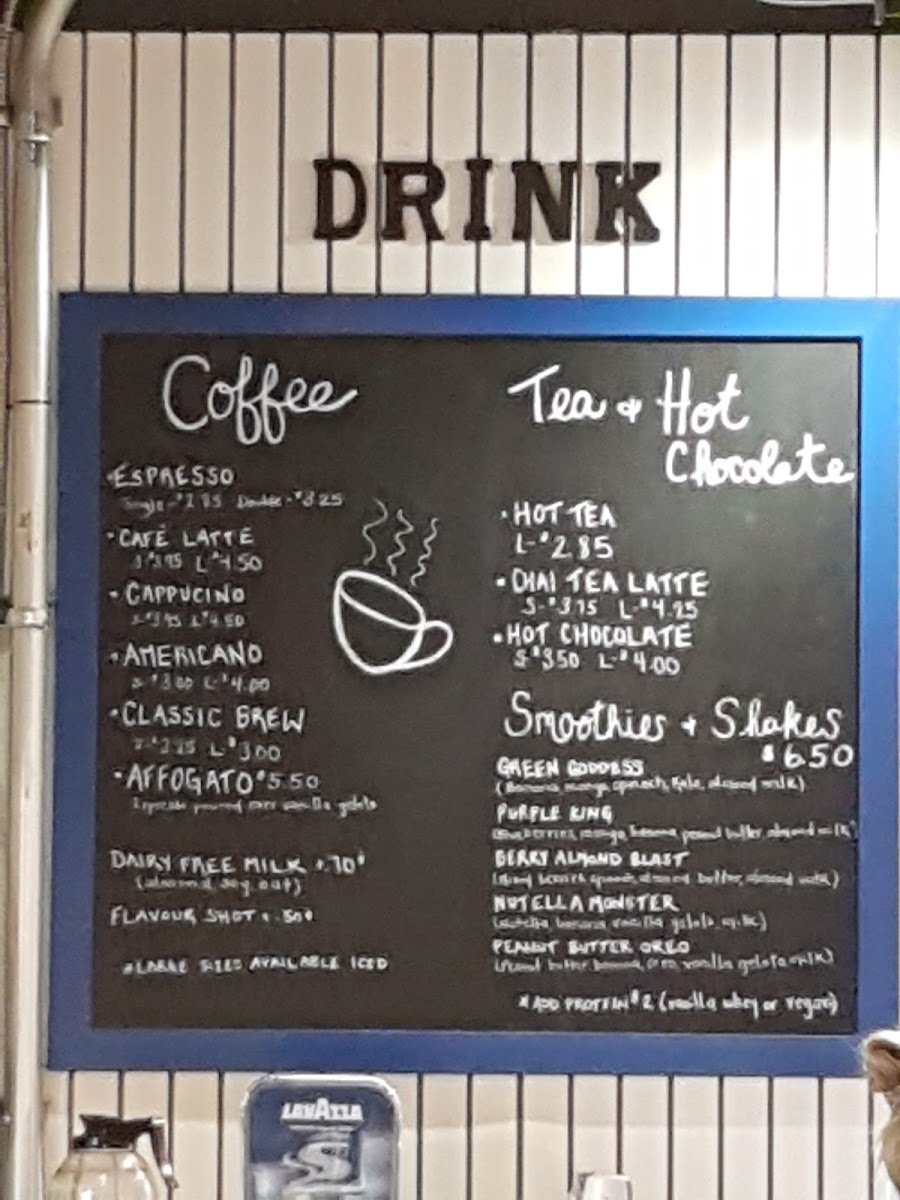 DRINK
Coffee
• ESPRESSO
Single - $2.85 Double - $3.25
• CAFÉ LATTE
S-$3.95 L-$4.50
• CAPPUCINO
S-$3.95 L-$4.50
• AMERICANO
S-$3.00 L-$4.00
• CLASSIC BREW
L-$3.00
• AFFOGATO $5.50
Espresso poured over vanilla gelato
DAIRY FREE MILK +.70¢
(almond soy oat)
FLAVOUR SHOT +.50¢
*LARGE SIZES AVAILABLE ICED
Tea & Hot
Chocolate
• HOT TEA
L-$2.85
• CHAI TEA LATTE
S-$3.75 L-$4.25
• HOT CHOCOLATE
S-$3.50 L-$4.00
Smoothies & Shakes
$6.50
GREEN GODDESS
(Banana, mango, spinach, kale, almond milk)
PURPLE KING
(Blueberries, mango, banana, peanut butter, almond milk)
BERRY ALMOND BLAST
(Mixed berries, spinach, almond butter, almond milk)
NUTELLA MONSTER
(Nutella, banana, vanilla gelato, milk)
PEANUT BUTTER OREO
(Peanut butter, banana, oreo, vanilla gelato, milk)
* ADD PROTEIN $2 (vanilla whey or vegan)
LAVAZZA